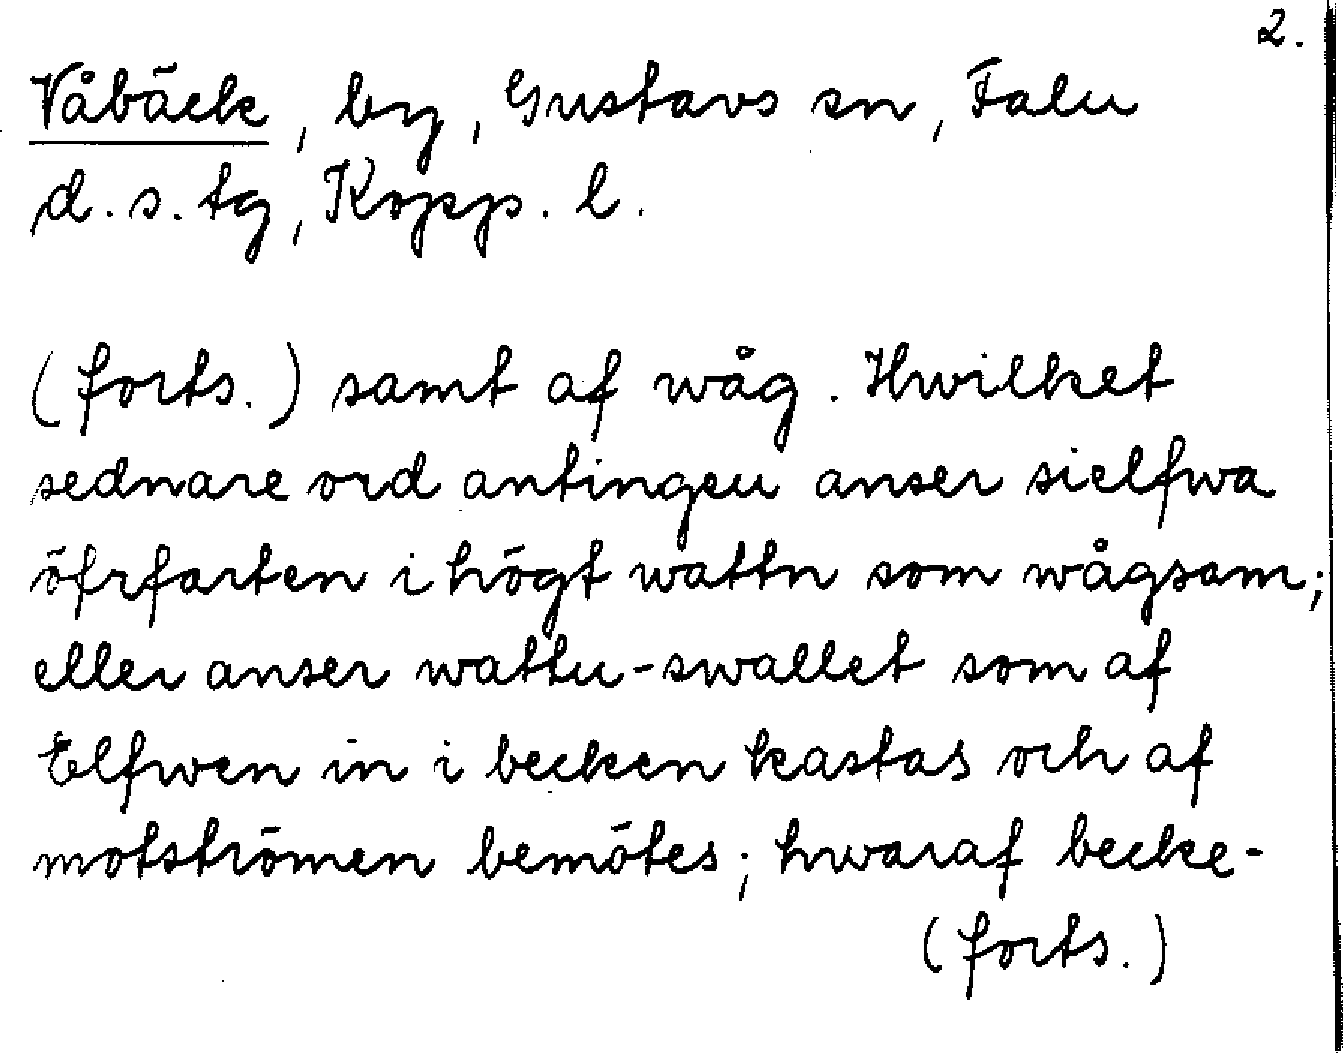 2.
Våbäck, by, Gustavs sn, Falu
d. s. tg, Kopp. l.
(forts.) samt af wåg. Hwilket
sednare ord antingen anser sielfwa
öfrfarten i högt wattn som wågsam;
eller anser wattu-swallet som af
Elfwen in i becken kastas och af
motströmen bemötes; hwaraf becke-
(forts.)